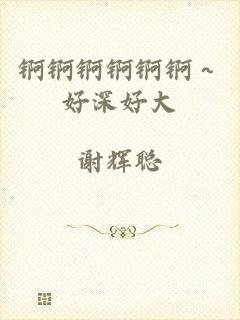 锕锕锕锕锕锕～
好深好大
谢辉聪